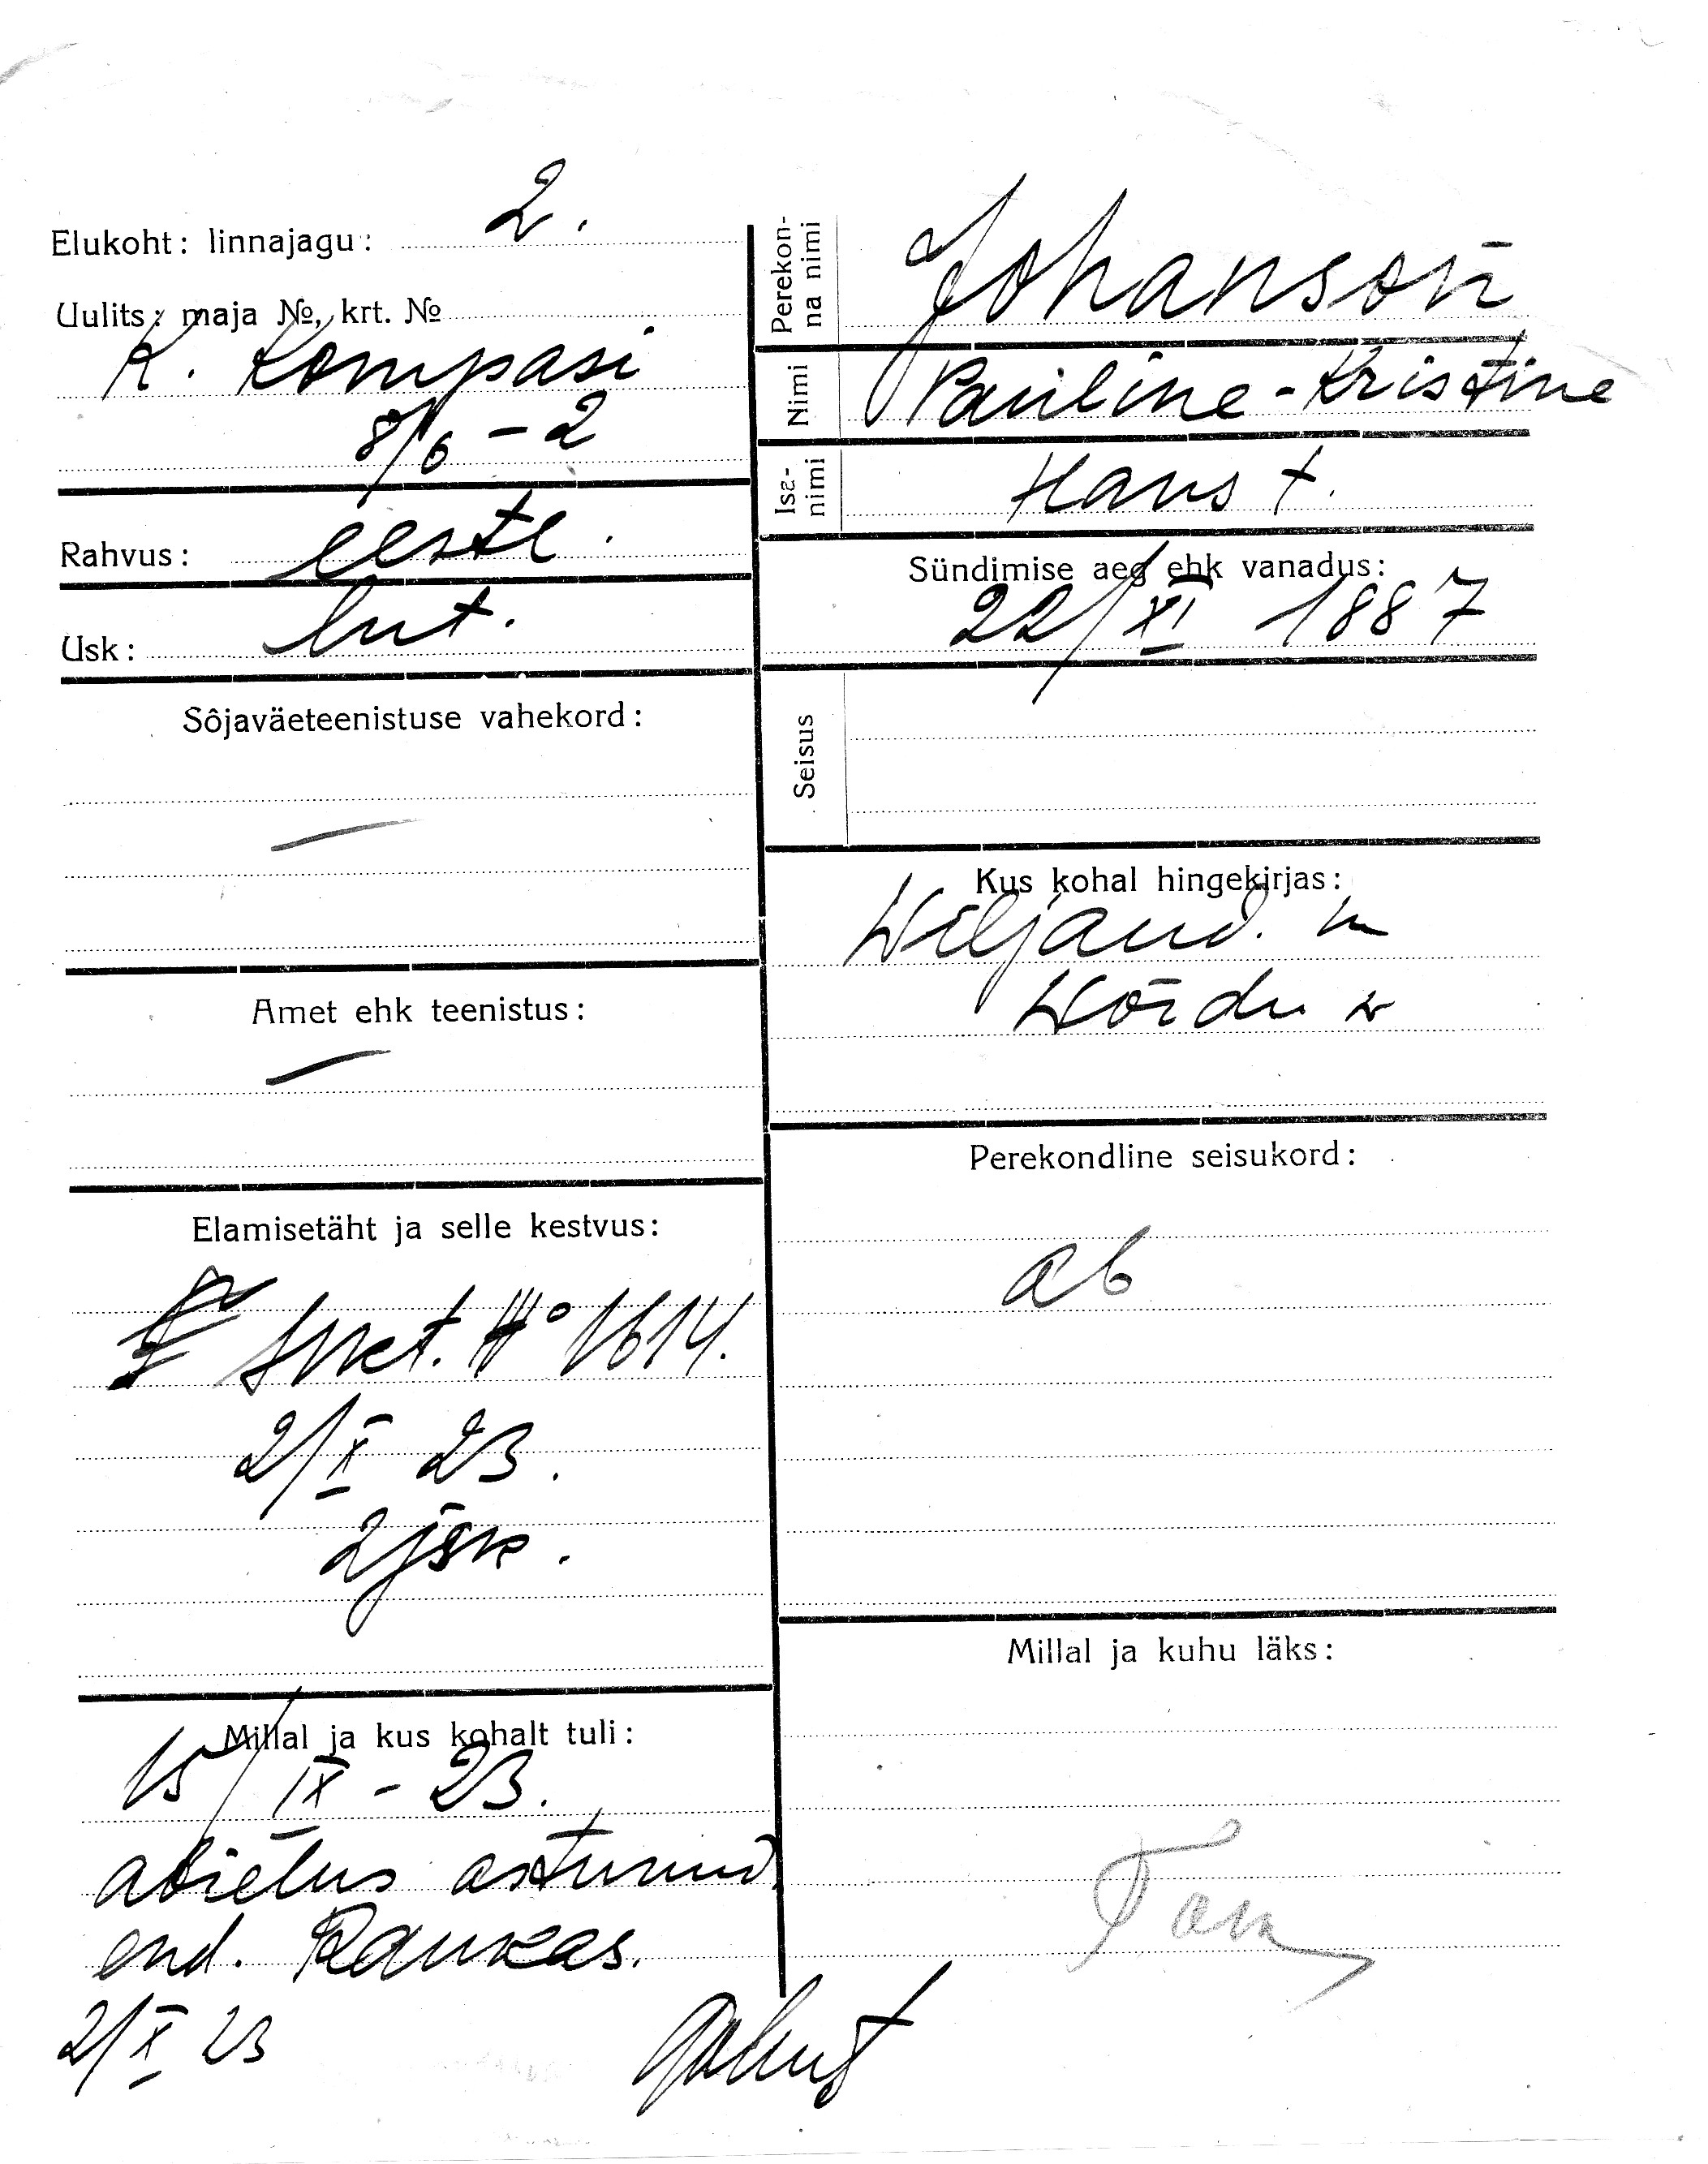 Elukoht: linnajagu: 2.
Uulits: maja №, krt. №
K. Kompasi
8/6 - 2
Rahvus: eesti.
Usk: lut.
Sôjaväeteenistuse vahekord:
—
Amet ehk teenistus:
—
Elamisetäht ja selle kestvus:
№ 1614.
2/X 23.
2 jsk.
Millal ja kus kohalt tuli:
15/IX - 23.
abiellus astunud
end. Raukas.
2/X 23
Perekonna nimi Johanson
Nimi Pauline-Kristine
Isa-nimi Hans †.
Sündimise aeg ehk vanadus:
22/XI 1887
Seisus
Kus kohal hingekirjas:
Wiljand. m
Wõidu w
Perekondline seisukord:
ab
Millal ja kuhu läks: